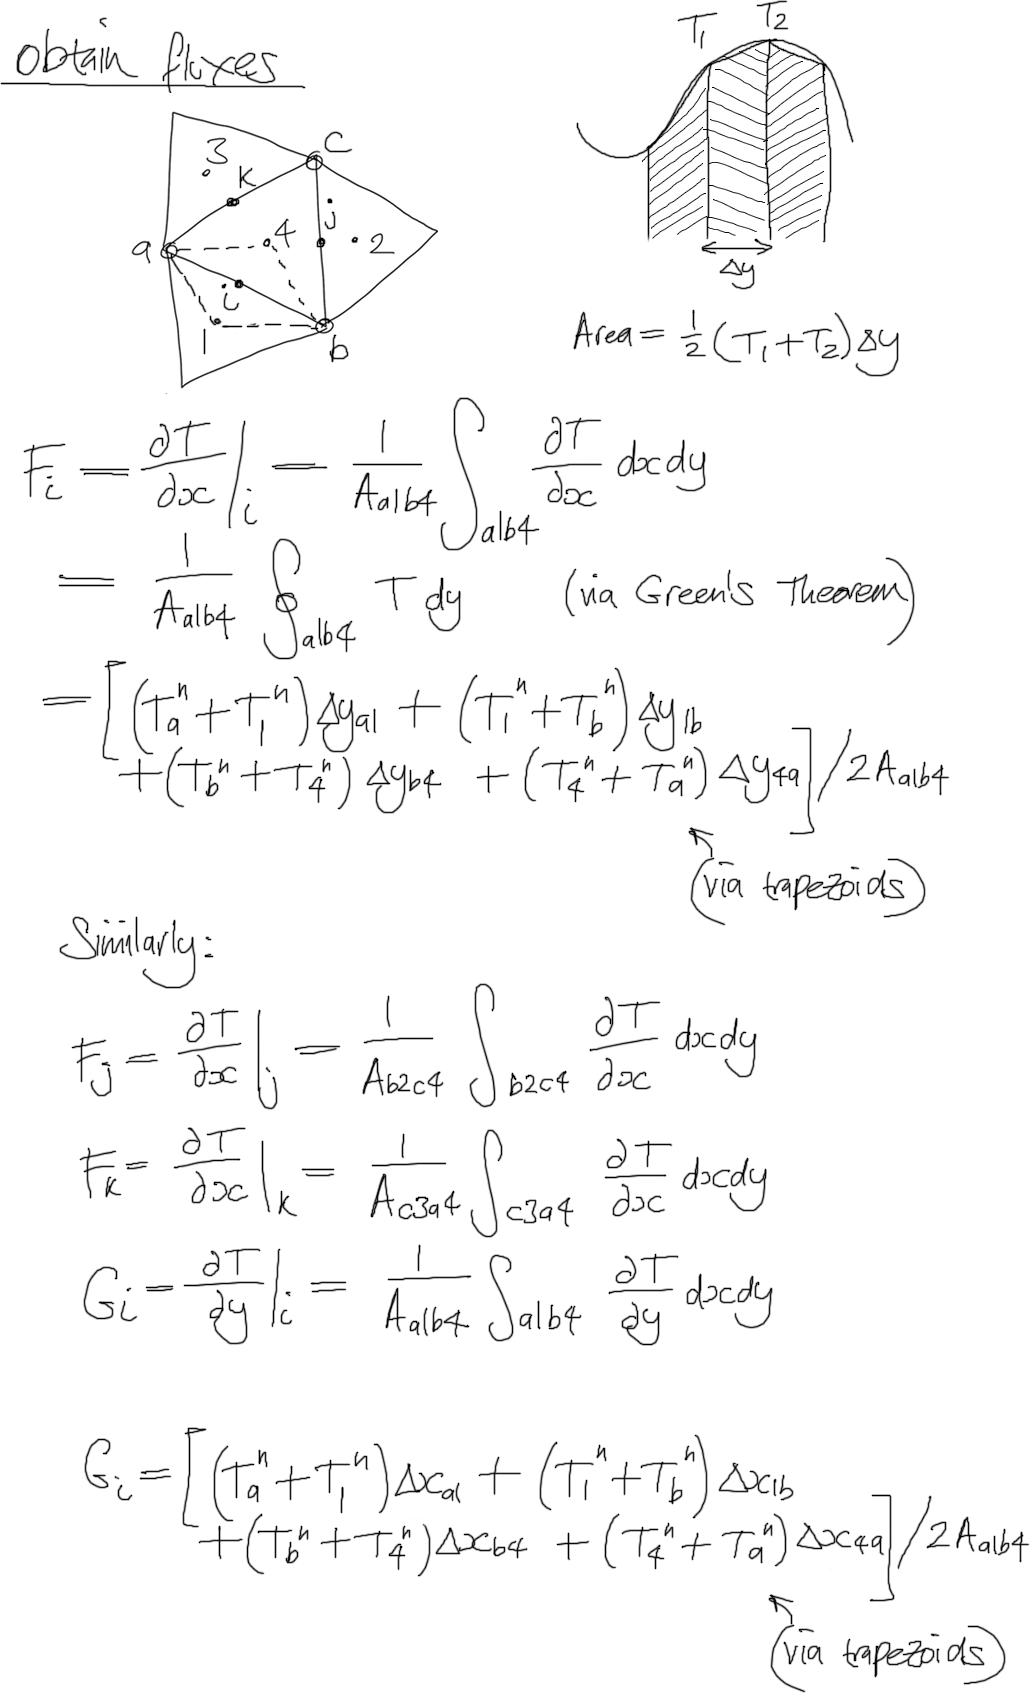 obtain fluxes
T₁ T₂
3 k c
j
a 4 2
i
1 b
Δy
Area = ½ (T₁+T₂) Δy
F_i = ∂T/∂x |_i = 1/A_a1b4 ∫_a1b4 ∂T/∂x dxdy
= 1/A_a1b4 ∮_a1b4 T dy (via Green's Theorem)
= [(T_a^n + T_1^n) Δy_a1 + (T_1^n + T_b^n) Δy_1b
+ (T_b^n + T_4^n) Δy_b4 + (T_4^n + T_a^n) Δy_4a] / 2A_a1b4
(via trapezoids)
Similarly:
F_j = ∂T/∂x |_j = 1/A_b2c4 ∫_b2c4 ∂T/∂x dxdy
F_k = ∂T/∂x |_k = 1/A_c3a4 ∫_c3a4 ∂T/∂x dxdy
G_i = ∂T/∂y |_i = 1/A_a1b4 ∫_a1b4 ∂T/∂y dxdy
G_i = [(T_a^n + T_1^n) Δx_a1 + (T_1^n + T_b^n) Δx_1b
+ (T_b^n + T_4^n) Δx_b4 + (T_4^n + T_a^n) Δx_4a] / 2A_a1b4
(via trapezoids)